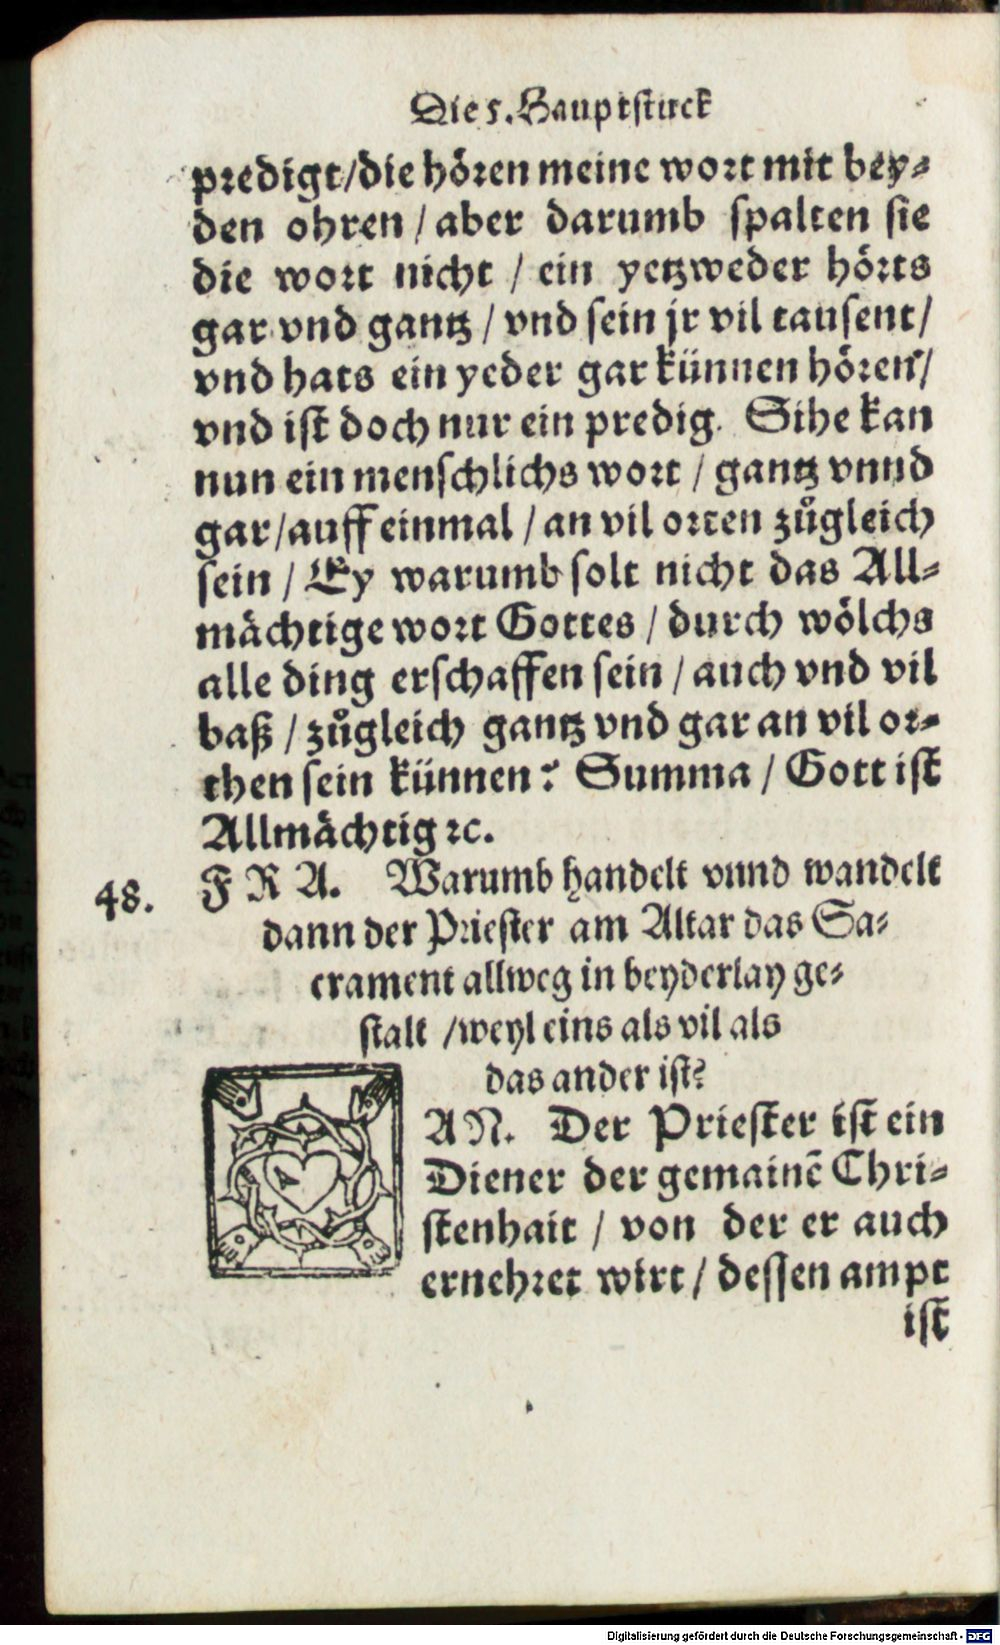 Die 5. Hauptstuck
predigt/die hören meine wort mit bey⸗
den ohren / aber darumb spalten sie
die wort nicht / ein yetzweder hörts
gar vnd gantz / vnd sein jr vil tausent/
vnd hats ein yeder gar künnen hören/
vnd ist doch nur ein predig. Sihe kan
nun ein menschlichs wort / gantz vnnd
gar/auff einmal / an vil orten zůgleich
sein / Ey warumb solt nicht das All⸗
mächtige wort Gottes / durch wölchs
alle ding erschaffen sein / auch vnd vil
baß / zůgleich gantz vnd gar an vil or⸗
then sein künnen? Summa / Gott ist
Allmächtig ꝛc.
48. F R A. Warumb handelt vnnd wandelt
dann der Priester am Altar das Sa⸗
crament allweg in beyderlay ge⸗
stalt /weyl eins als vil als
das ander ist?
AN. Der Priester ist ein
Diener der gemainē Chri⸗
stenhait / von der er auch
ernehret wirt / dessen ampt
ist
Digitalisierung gefördert durch die Deutsche Forschungsgemeinschaft - DFG